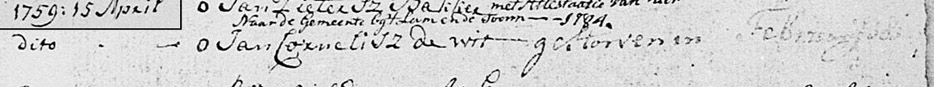 1759: 15 April o Jan Pietersz met Attestatie van hier
Naar de Gemeente bij't Lam en de Toorn — 1784.
dito - — o Jan Cornelisz de wit — gestorven in Februarij